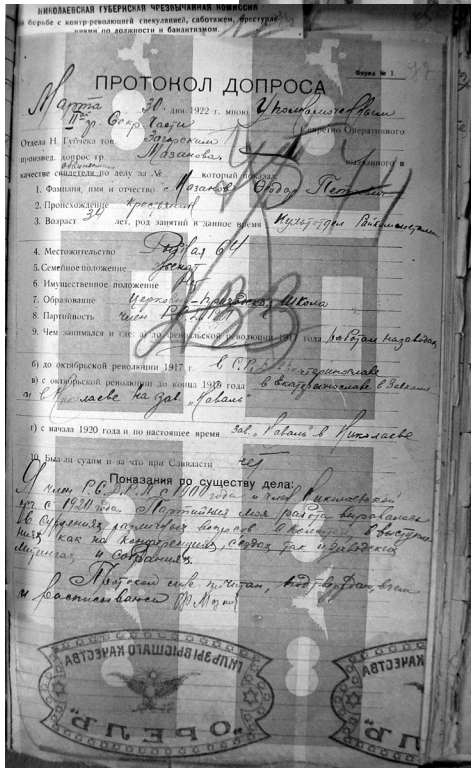 НИКОЛАЕВСКАЯ ГУБЕРНСКАЯ ЧРЕЗВЫЧАЙНАЯ КОМИССИЯ
по борьбе с контр-революцией, спекуляцией, саботажем, преступле-
ниями по должности и бандитизмом.
Форма № 1
ПРОТОКОЛ ДОПРОСА
Марта 30 дня 1922 г. мною, Уполномоченным
Секр. части Секретно Оперативного
Отдела Н. Губчека тов. Загорским
произвел. допрос гр. Мазанова вызванного в
качестве свидетеля по делу за № который показал:
1. Фамилия, имя и отчество Мазанов Федор
2. Происхождение крестьянин
3. Возраст 34 лет, род занятий в данное время Культотдел
4. Местожительство 64
5. Семейное положение женат
6. Имущественное положение нет
7. Образование церковно-приходская школа
8. Партийность член РСДРП
9. Чем занимался и где: а) до февральской революции 1917 года работал на заводах
б) до октябрьской революции 1917 г. в Екатеринославе
в) с октябрьской революции до конца 1919 года в Екатеринославе
и в Николаеве на зав. „Наваль"
г) с начала 1920 года и по настоящее время зав. „Наваль" в Николаеве
10. Был-ли судим и за что при Соввласти нет
Показания по существу дела:
Я член Р.С.Д.Р.П. с 1900 года и член Николаевской
с 1920 года. Партийная моя работа выражалась
в обсуждениях различных вопросов в комитете, в выступле-
ниях как на конференциях, съездах так и заводских
митингах и собраниях.
Протокол сие прочитан, подтверждаю, в чем
и расписываюсь
ГИЛЬЗЫ ВЫСШАГО КАЧЕСТВА
"ОРЕЛЪ"
ГИЛЬЗЫ ВЫСШАГО КАЧЕСТВА
"ОРЕЛЪ"